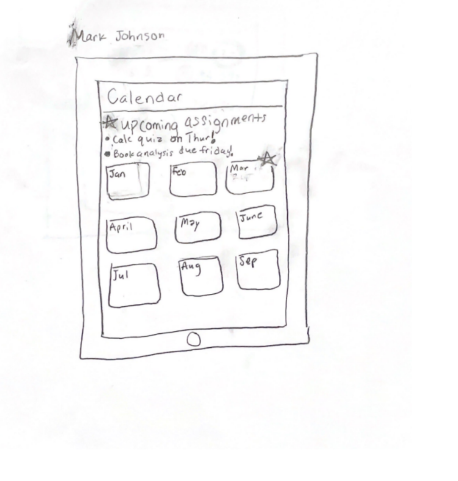 Mark Johnson
Calendar
Upcoming assignments
• Calc quiz on Thur!
• Book analysis due friday!
Jan Feb Mar
April May June
Jul Aug Sep